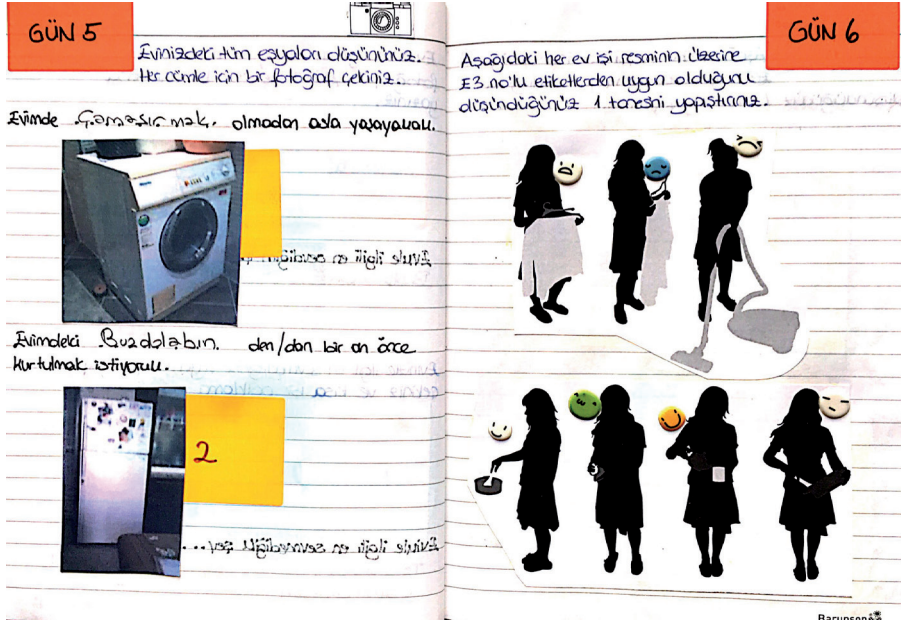 GÜN 5
Evinizdeki tüm eşyaları düşününüz.
Her cümle için bir fotoğraf çekiniz.
Evimde Çamaşır mak. olmadan asla yaşayamam.
Evimle ilgili en sevdiğim
Evimdeki Buzdolabın. den/dan bir an önce
kurtulmak istiyorum.
2
Evimle ilgili en sevmediğim şey...
GÜN 6
Aşağıdaki her ev işi resminin üzerine
E3 no'lu etiketlerden uygun olduğunu
düşündüğünüz 1 tanesini yapıştırınız.